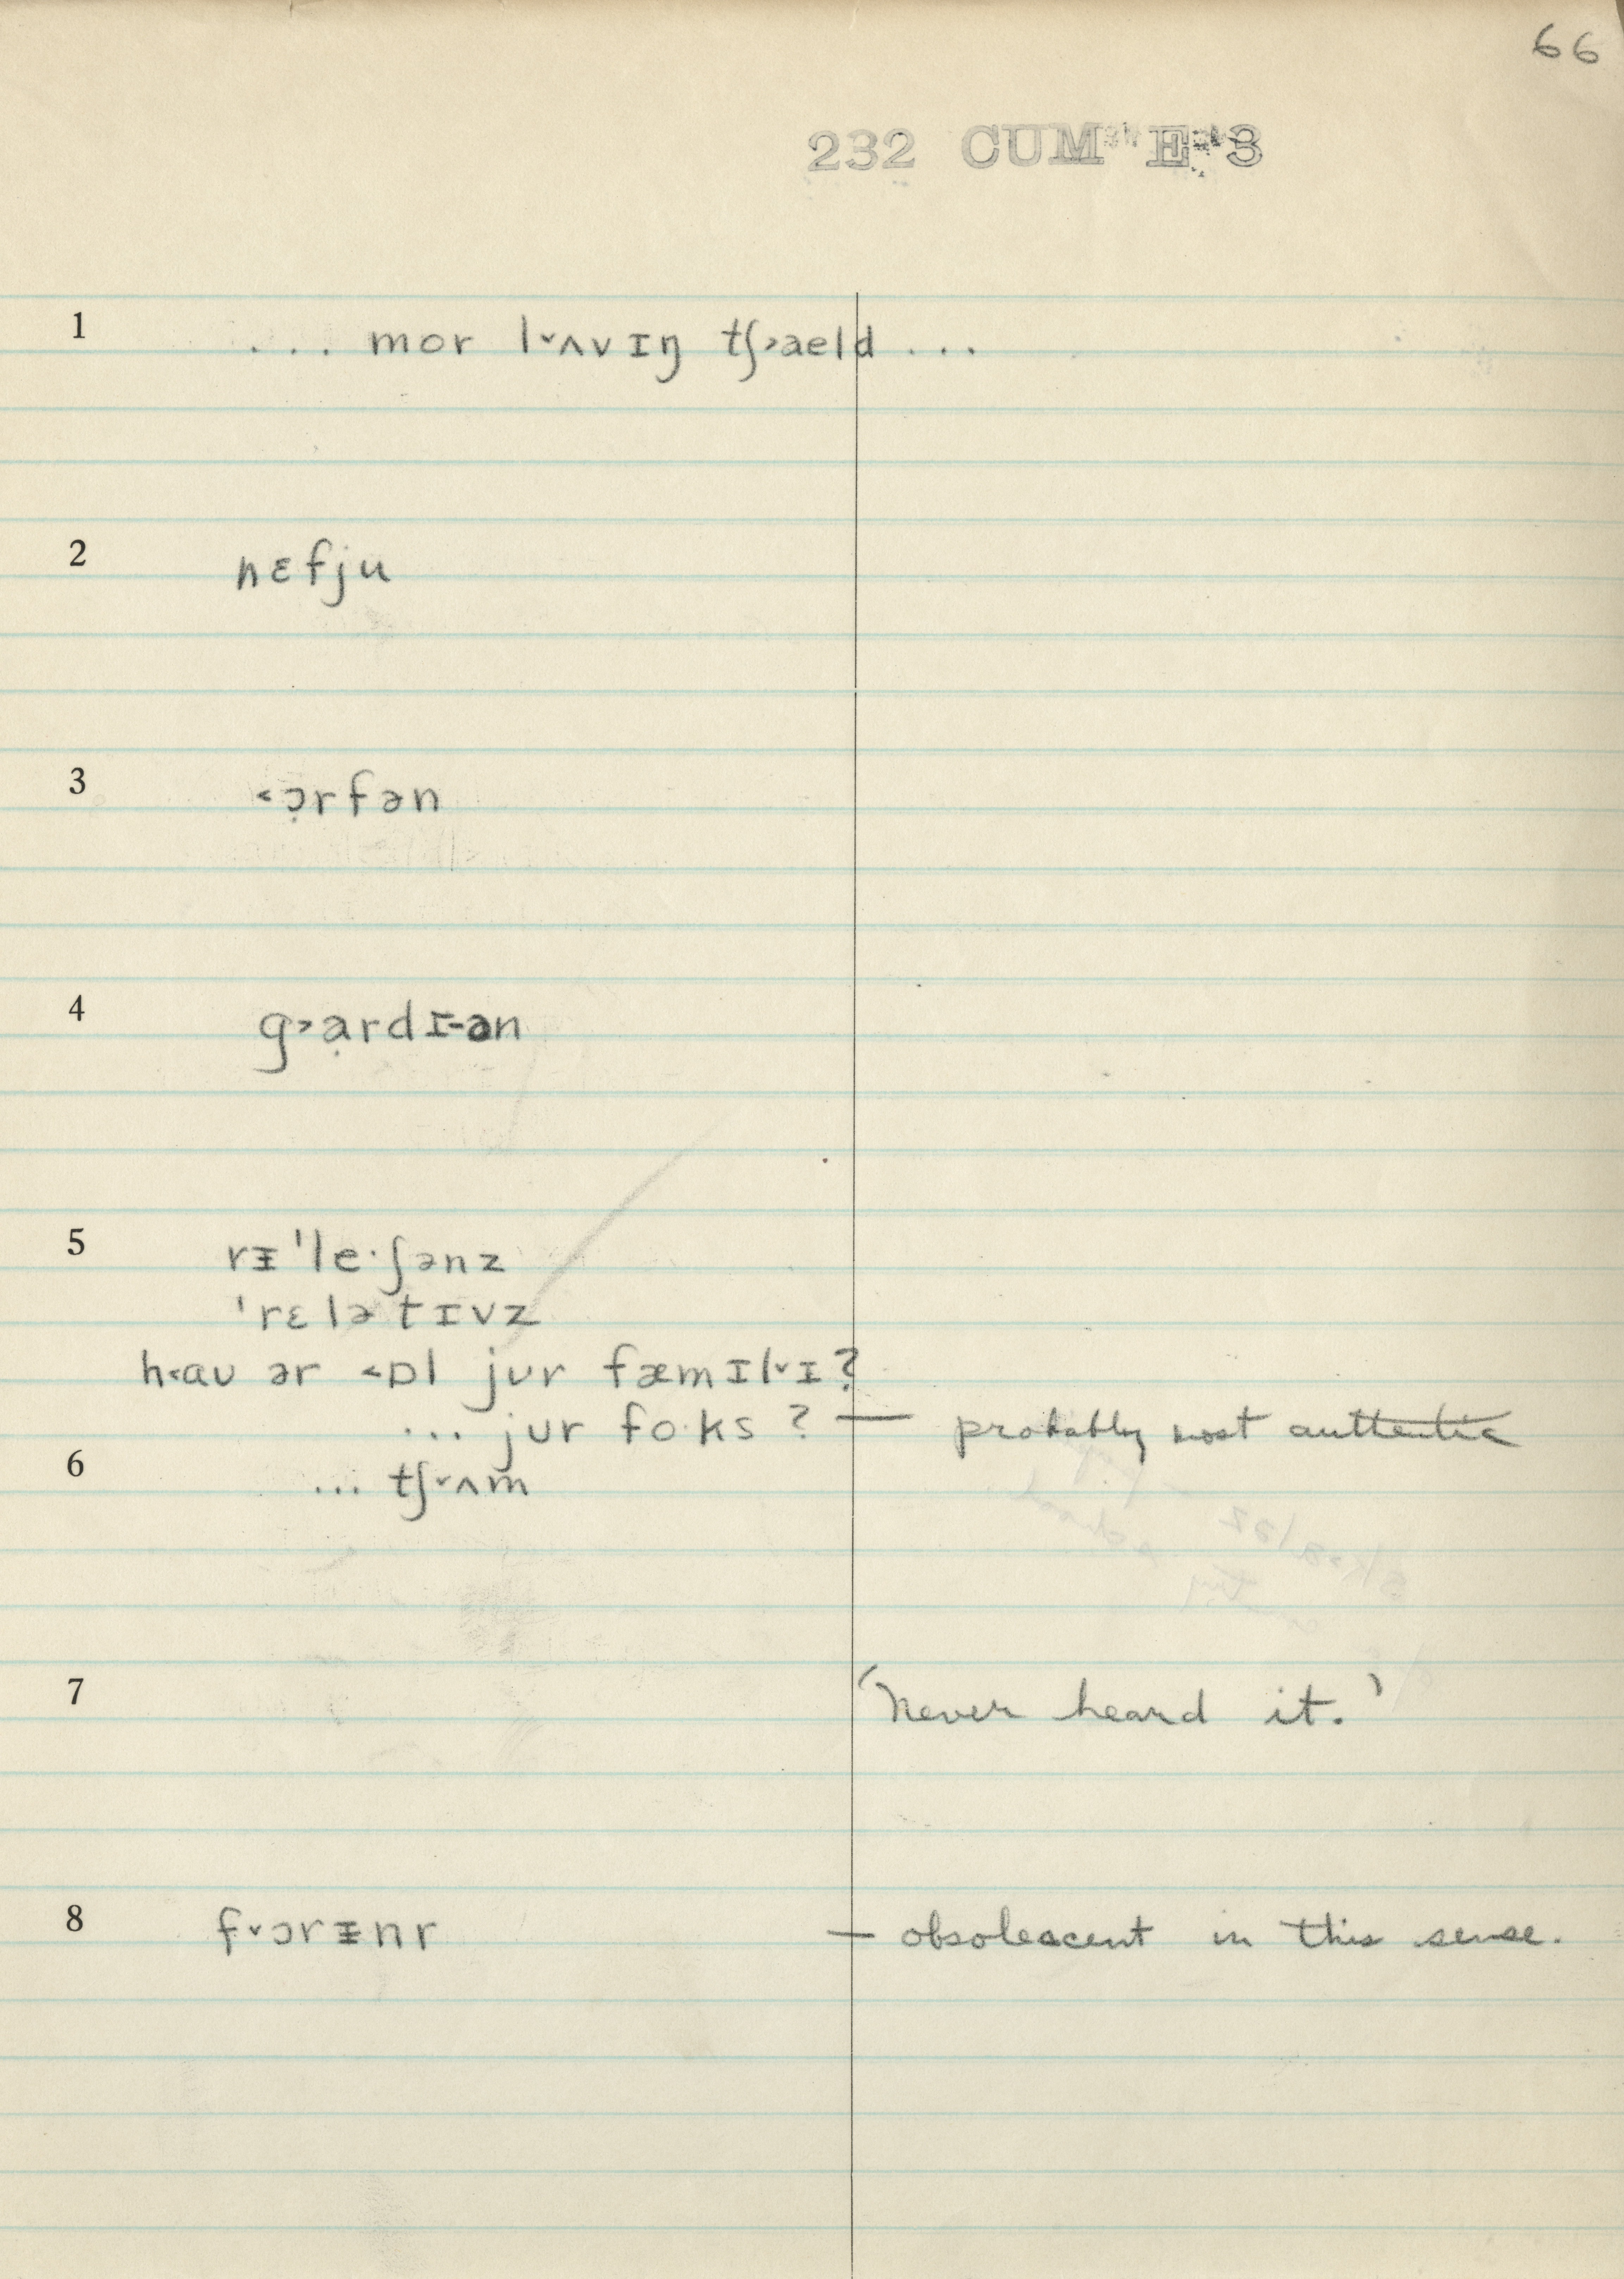 66
232 CUM E 3
1 ... mor l˅ʌvɪŋ tʃ˃aeld ...
2 nɛfju
3 ˂ɔ̣rfən
4 g˃ạrdɪ-ən
5 rᵻˈle·ʃənz
ˈrɛlətɪvz
h˂aʊ ər ˂ɒl jʊr fæmɪl˅ɪ?
... jʊr fo·ks ? — probably most authentic
6 ... tʃ˅ʌm
7 'Never heard it.'
8 f˅ɔrᵻnr — obsolescent in this sense.